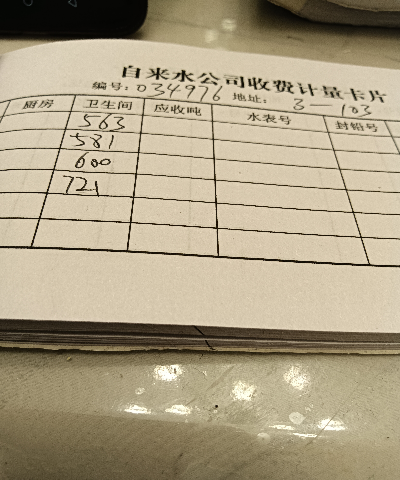 自来水公司收费计量卡片
编号: 034976 地址: 3-103
厨房 卫生间 应收吨 水表号 封铅号
563
581
600
721